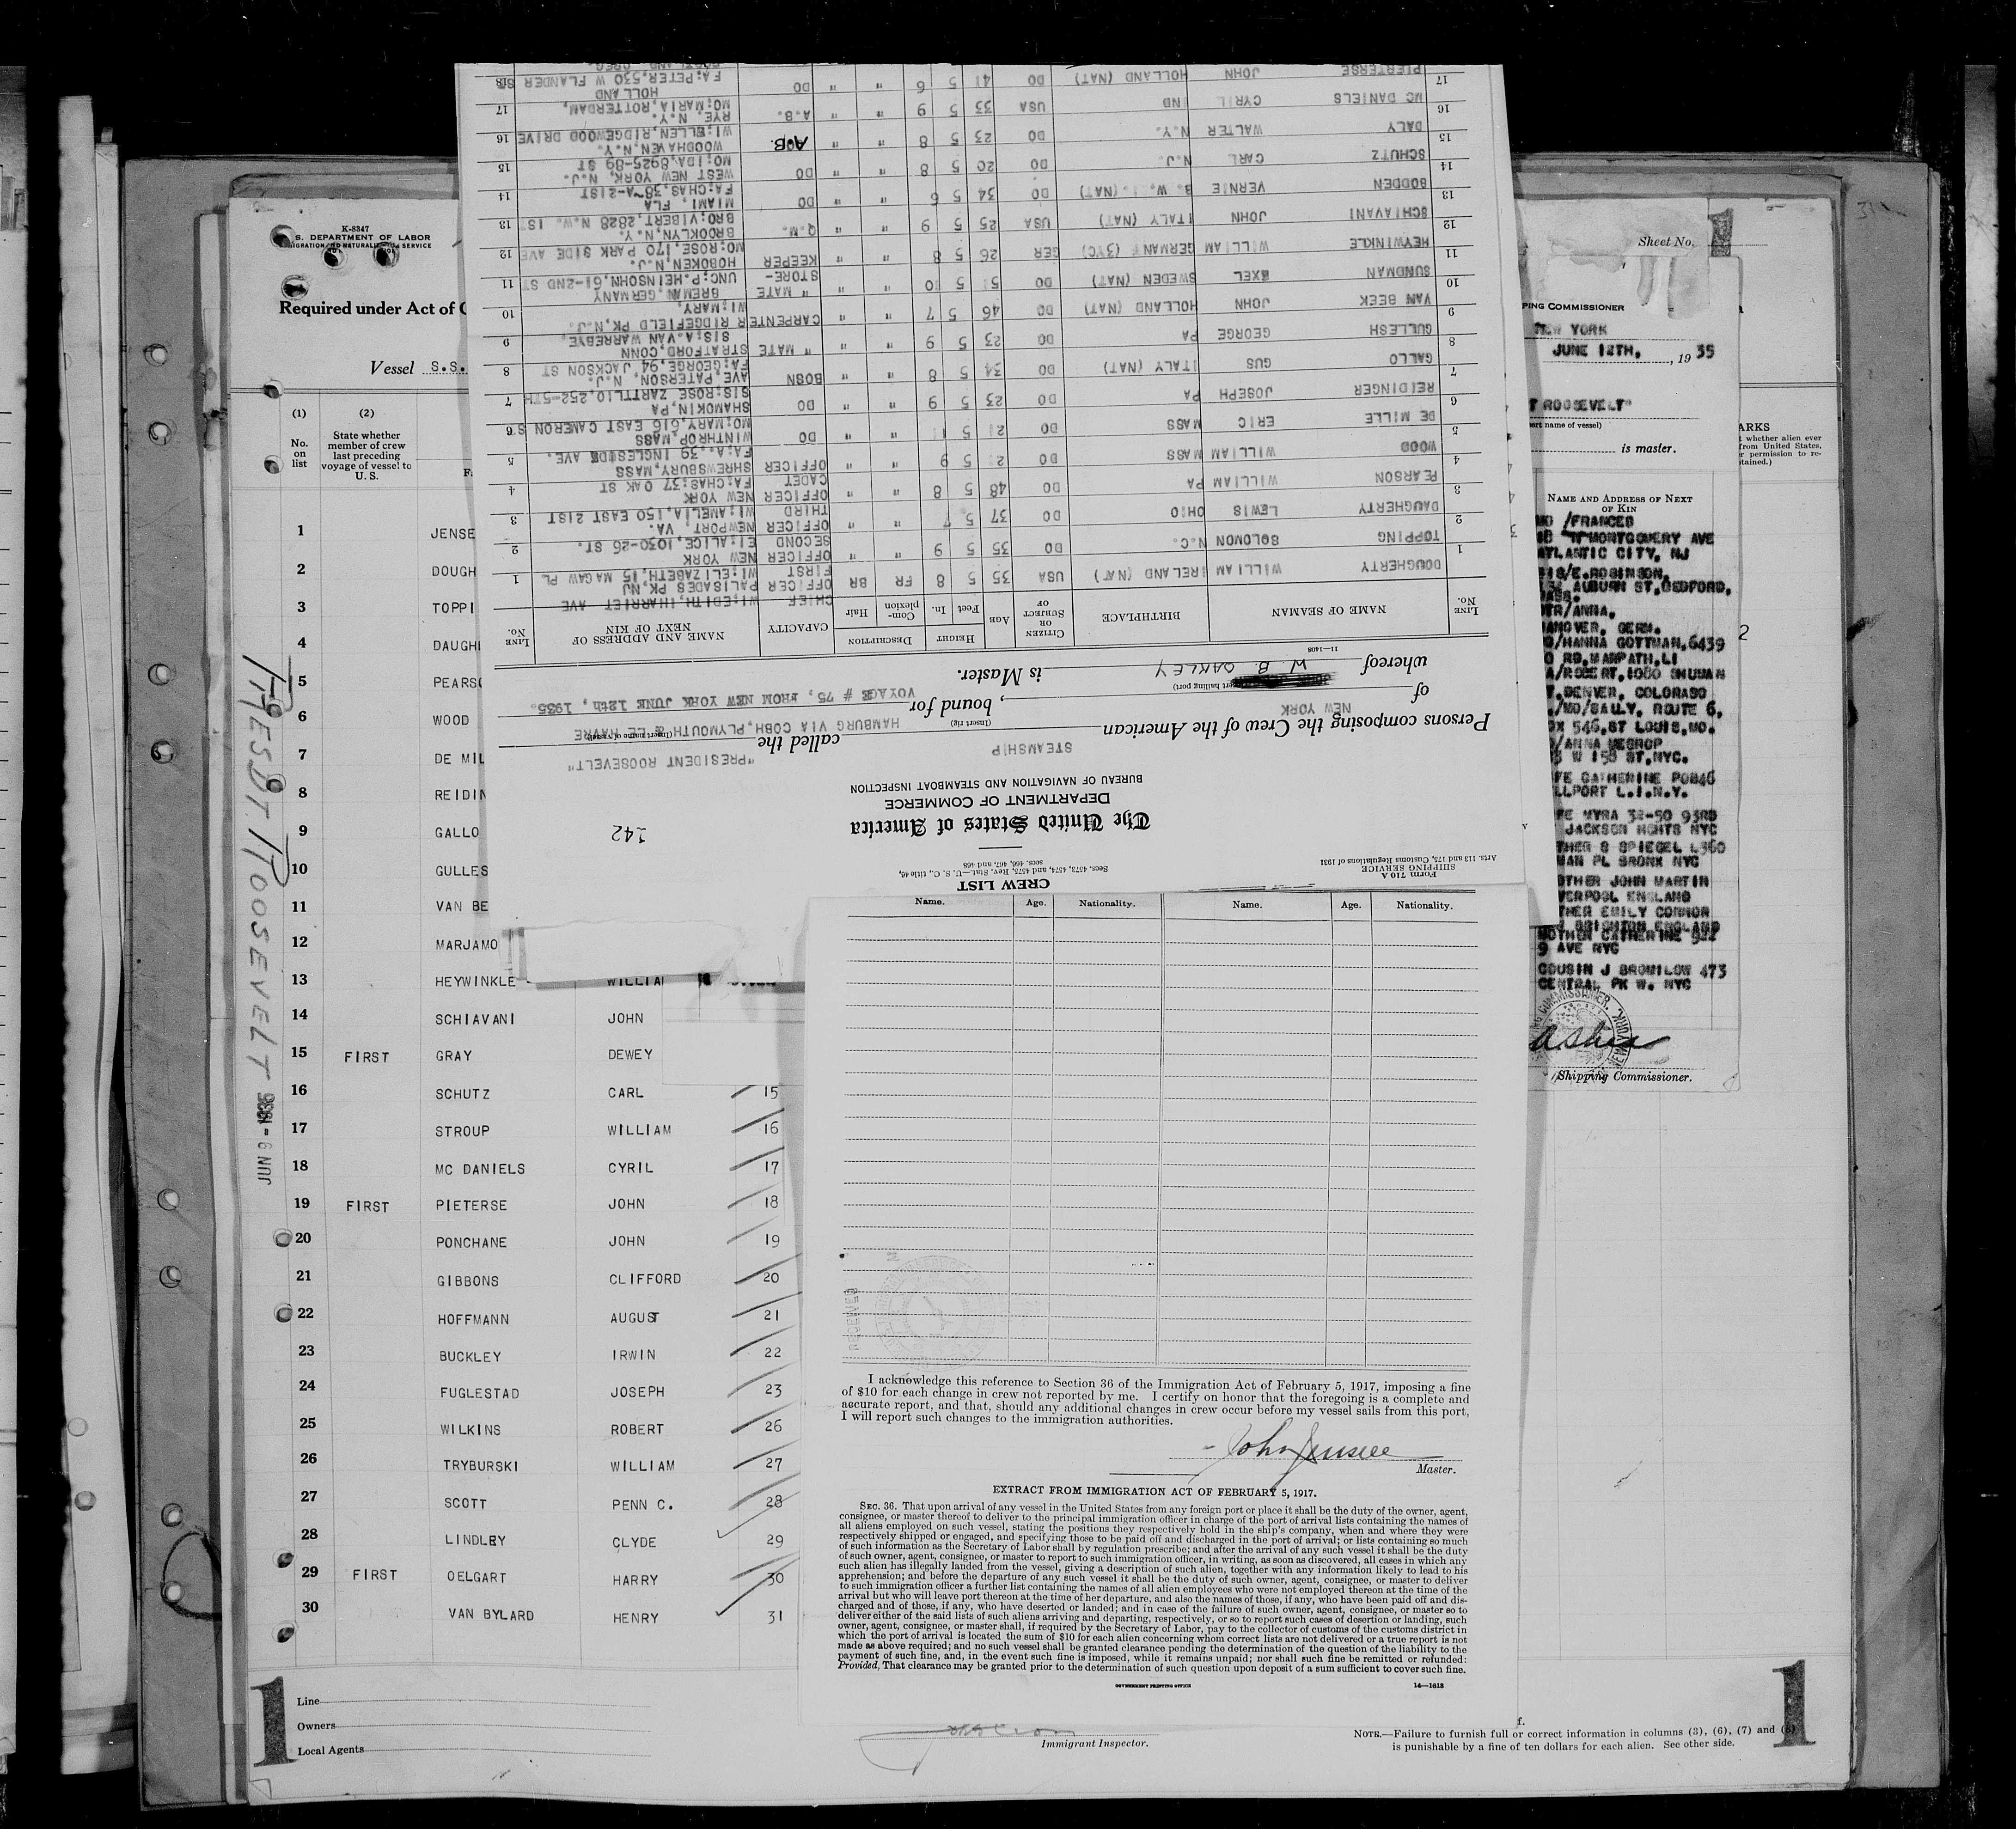 K-8347
S. DEPARTMENT OF LABOR
IMMIGRATION AND NATURALIZATION SERVICE
Required under Act of
Vessel S.S.
(1) (2)
No. on list
State whether member of crew last preceding voyage of vessel to U. S.
1 JENSE
2 DOUGH
3 TOPPI
4 DAUGH
5 PEARS
6 WOOD
7 DE MIL
8 REIDIN
9 GALLO
10 GULLES
11 VAN BE
12 MARJAMO
13 HEYWINKLE WILLIA
14 SCHIAVANI JOHN
15 FIRST GRAY DEWEY
16 SCHUTZ CARL 15
17 STROUP WILLIAM 16
18 MC DANIELS CYRIL 17
19 FIRST PIETERSE JOHN 18
20 PONCHANE JOHN 19
21 GIBBONS CLIFFORD 20
22 HOFFMANN AUGUST 21
23 BUCKLEY IRWIN 22
24 FUGLESTAD JOSEPH 23
25 WILKINS ROBERT 26
26 TRYBURSKI WILLIAM 27
27 SCOTT PENN C. 28
28 LINDLEY CLYDE 29
29 FIRST OELGART HARRY 30
30 VAN BYLARD HENRY 31
PRESDT. ROOSEVELT
JUN 9 - 1935
1
Line
Owners
Local Agents
Form 710 A
SHIPPING SERVICE
Arts. 113 and 175, Customs Regulations of 1931
CREW LIST
Secs. 4573, 4574, and 4575, Rev. Stat.—U. S. C., title 46,
secs. 466, 467, and 468
242
The United States of America
DEPARTMENT OF COMMERCE
BUREAU OF NAVIGATION AND STEAMBOAT INSPECTION
Persons composing the Crew of the American STEAMSHIP called the "PRESIDENT ROOSEVELT"
(Insert rig) (Insert name of vessel)
of NEW YORK, bound for HAMBURG VIA COBH, PLYMOUTH & LE HAVRE
VOYAGE # 75, FROM NEW YORK JUNE 12th, 1935.
(Insert hailing port)
whereof W. B. OAKLEY is Master.
11—1408
LINE No. NAME OF SEAMAN BIRTHPLACE CITIZEN OR SUBJECT OF AGE HEIGHT Feet In. DESCRIPTION Complexion Hair CAPACITY NAME AND ADDRESS OF NEXT OF KIN LINE No.
CHIEF WI;EDITH, 1HARRIET AVE
1 DOUGHERTY WILLIAM IRELAND (NAT) USA 35 5 8 FR BR OFFICER PALISADES PK, NJ 1
FIRST WI;ELIZABETH,15 MAGAW PL
2 TOPPING SOLOMON N.C. DO 35 5 9 " " OFFICER NEW YORK 2
SECOND EI;ALICE, 1030-26 ST.
DAUGHERTY LEWIS OHIO DO 37 5 7 " " OFFICER NEWPORT, VA.
THIRD WI;AMELIA,150 EAST 21ST 3
3 PEARSON WILLIAM PA DO 48 5 8 " " OFFICER NEW YORK
CADET FA;CHAS;37 OAK ST 4
4 WOOD WILLIAM MASS DO 5 9 " OFFICER SHREWSBURY,MASS
FA;A.,39 INGLESIDE AVE. 5
5 DE MILLE ERIC MASS DO 5 " " DO WINTHROP, MASS
MO;MARY,616 EAST CAMERON ST 6
6 REIDINGER JOSEPH PA DO 23 5 9 " " DO SHAMOKIN,PA
SIS;ROSE ZARTILIO,252-5TH 7
7 GALLO GUS ITALY (NAT) DO 34 5 8 " " BOSN AVE,PATERSON, N.J.
FA;GEORGE,94 JACKSON ST 8
8 GULLESH GEORGE PA DO 23 5 9 " " " MATE STRATFORD,CONN
SIS;A.VAN WARREBYE. 9
9 VAN BEEK JOHN HOLLAND (NAT) DO 46 5 7 " " CARPENTER RIDGEFIELD PK,N.J.
WI;MARY, 10
10 SUNDMAN EXEL SWEDEN (NAT) DO 5 10 " " " MATE BREMAN,GERMANY
STORE- UNC;P.HEINSOHN,61-2ND ST 11
11 HEYWINKLE WILLIAM GERMANY (3YC) GER 26 5 8 " " KEEPER HOBOKEN,N.J.
MO;ROSE,170 PARK SIDE AVE 12
12 SCHIAVANI JOHN ITALY (NAT) USA 25 5 9 " " Q.M. BROOKLYN,N.Y.
BRO;VIBERT,2828 N.W. 1S 13
13 BODDEN VERNIE B. W. I.(NAT) DO 34 5 6 " " DO MIAMI, FLA
FA;CHAS,38-A-21ST 14
14 SCHUTZ CARL N.J. DO 20 5 8 " " DO WEST NEW YORK, N.J.
MO;IDA,8925-89 ST 15
15 DALY WALTER N.Y. DO 23 5 8 " " A.B. WOODHAVEN,N.Y.
WI;ELLEN,RIDGEWOOD DRIVE 16
16 MC DANIELS CYRIL IND USA 33 5 9 " " A.B. RYE, N.Y.
MO;MARIA,ROTTERDAM, 17
17 PIERTERSE JOHN HOLLAND (NAT) DO 41 5 6 " " DO HOLLAND
FA;PETER,530 W FLANDER 18
Name. Age. Nationality. Name. Age. Nationality.
RECEIVED
I acknowledge this reference to Section 36 of the Immigration Act of February 5, 1917, imposing a fine
of $10 for each change in crew not reported by me. I certify on honor that the foregoing is a complete and
accurate report, and that, should any additional changes in crew occur before my vessel sails from this port,
I will report such changes to the immigration authorities.
John Jensen
Master.
EXTRACT FROM IMMIGRATION ACT OF FEBRUARY 5, 1917.
SEC. 36. That upon arrival of any vessel in the United States from any foreign port or place it shall be the duty of the owner, agent,
consignee, or master thereof to deliver to the principal immigration officer in charge of the port of arrival lists containing the names of
all aliens employed on such vessel, stating the positions they respectively hold in the ship's company, when and where they were
respectively shipped or engaged, and specifying those to be paid off and discharged in the port of arrival; or lists containing so much
of such information as the Secretary of Labor shall by regulation prescribe; and after the arrival of any such vessel it shall be the duty
of such owner, agent, consignee, or master to report to such immigration officer, in writing, as soon as discovered, all cases in which any
such alien has illegally landed from the vessel, giving a description of such alien, together with any information likely to lead to his
apprehension; and before the departure of any such vessel it shall be the duty of such owner, agent, consignee, or master to deliver
to such immigration officer a further list containing the names of all alien employees who were not employed thereon at the time of the
arrival but who will leave port thereon at the time of her departure, and also the names of those, if any, who have been paid off and dis-
charged and of those, if any, who have deserted or landed; and in case of the failure of such owner, agent, consignee, or master so to
deliver either of the said lists of such aliens arriving and departing, respectively, or so to report such cases of desertion or landing, such
owner, agent, consignee, or master shall, if required by the Secretary of Labor, pay to the collector of customs of the customs district in
which the port of arrival is located the sum of $10 for each alien concerning whom correct lists are not delivered or a true report is not
made as above required; and no such vessel shall be granted clearance pending the determination of the question of the liability to the
payment of such fine, and, in the event such fine is imposed, while it remains unpaid; nor shall such fine be remitted or refunded:
Provided, That clearance may be granted prior to the determination of such question upon deposit of a sum sufficient to cover such fine.
GOVERNMENT PRINTING OFFICE 14—1613
Immigrant Inspector.
NOTE.—Failure to furnish full or correct information in columns (3), (6), (7) and (8)
is punishable by a fine of ten dollars for each alien. See other side.
1
Sheet No.
1
PING COMMISSIONER
NEW YORK
JUNE 12TH, , 1935
T ROOSEVELT"
ert name of vessel)
is master.
ARKS
whether alien ever
from United States,
r permission to re-
tained.)
NAME AND ADDRESS OF NEXT OF KIN
MO /FRANCES
MONTGOMERY AVE
ATLANTIC CITY, NJ
SIS/E.ROBINSON,
AUBURN ST,BEDFORD,
MASS.
/ANNA,
HANOVER, GERM.
/HANNA GOTTMAN,6439
RD,MASPATH,LI
/ROBERT,1080 SHUMAN
T,DENVER, COLORADO
/MO/SALLY, ROUTE 6,
OX 546,ST LOUIS,MO.
/ANNA
W 158 ST,NYC.
FE CATHERINE POB46
LLPORT L.I.N.Y.
FE MYRA 32-50 93RD
JACKSON HGHTS NYC
THER S SPIEGEL L360
MAN PL BRONX NYC
OTHER JOHN MARTIN
VERPOOL ENGLAND
THER EMILY CONNOR
BRIGHTON ENGLAND
MOTHER CATHERINE 922
9 AVE NYC
COUSIN J BROMILOW 473
CENTRAL PK W. NYC
2
Shipping Commissioner.